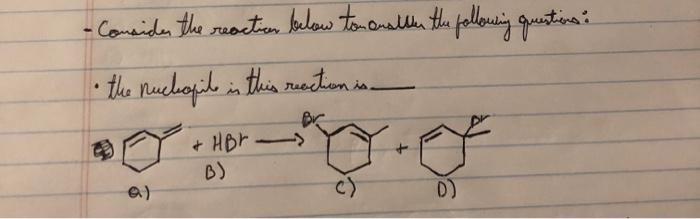 - Consider the reaction below to answer the following questions:
• the nucleopile in this reaction is
Br Br
+ HBr → +
a) B) C) D)